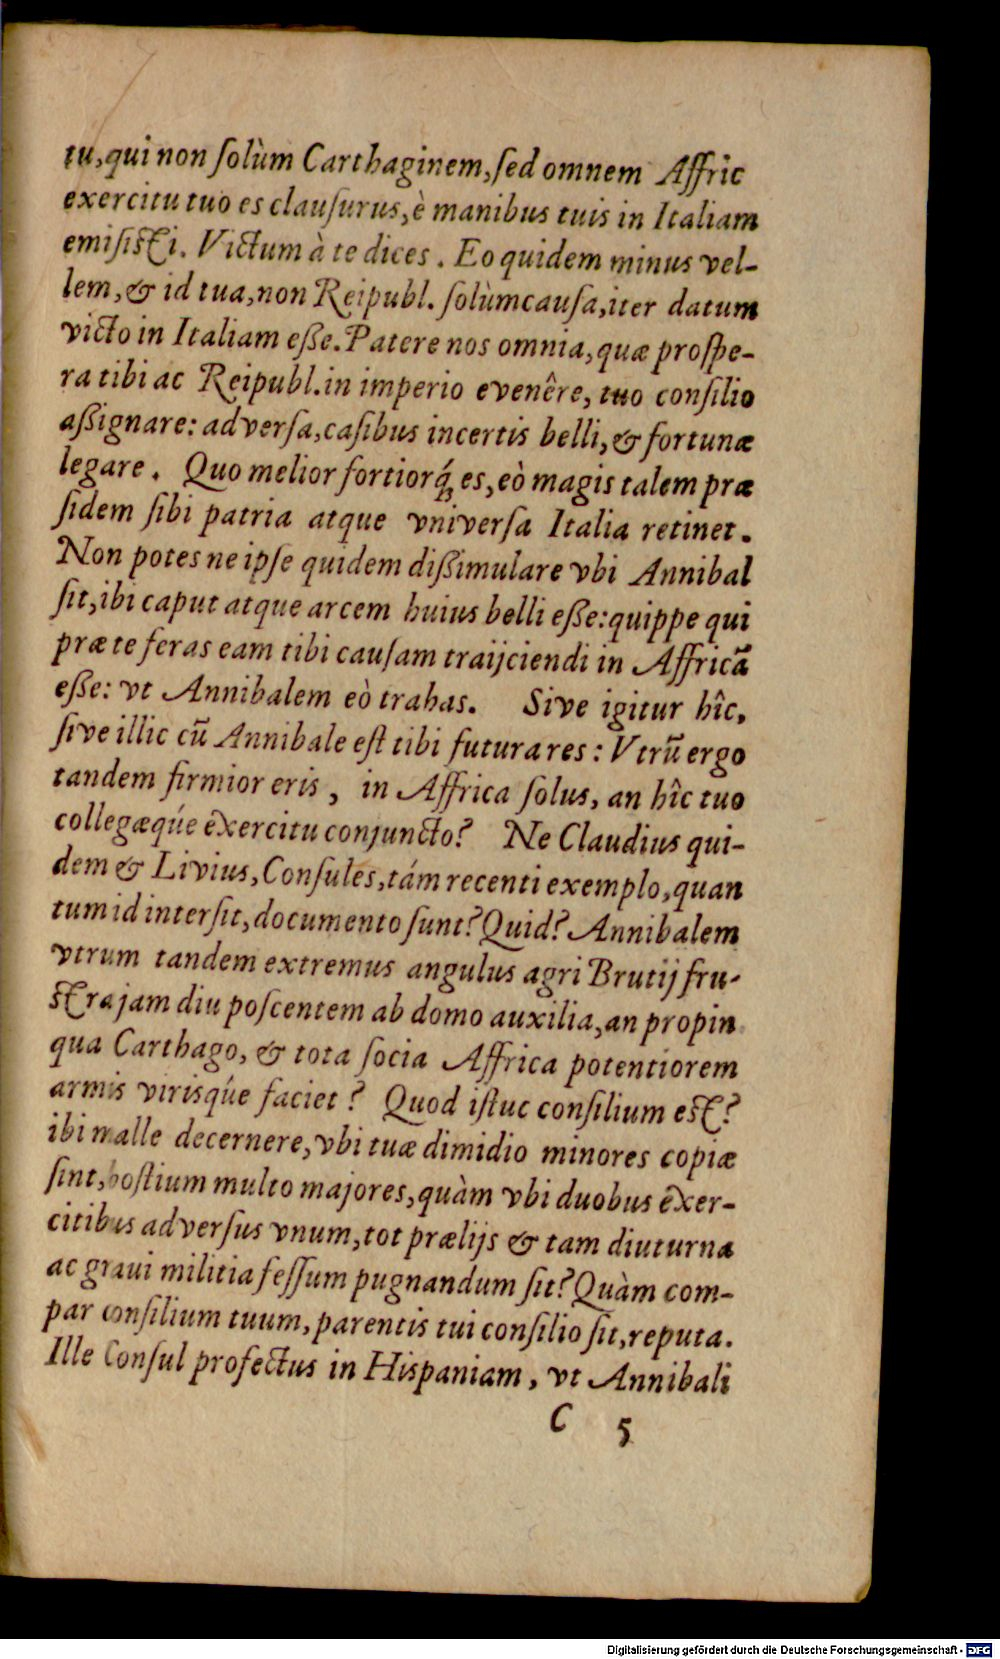 tu, qui non ſolùm Carthaginem, ſed omnem Affric
exercitu tuo es clauſurus, è manibus tuis in Italiam
emiſiſti. Victum à te dices. Eo quidem minus vel-
lem, & id tua, non Reipubl. ſolùm cauſa, iter datum
victo in Italiam eße. Patere nos omnia, quæ proſpe-
ra tibi ac Reipubl. in imperio evenêre, tuo conſilio
aßignare: adverſa, caſibus incertis belli, & fortunæ
legare. Quo melior fortiorq́ꝫ es, eò magis talem præ
ſidem ſibi patria atque vniverſa Italia retinet.
Non potes ne ipſe quidem dißimulare vbi Annibal
ſit, ibi caput atque arcem huius belli eße: quippe qui
præ te feras eam tibi cauſam traijciendi in Affricã
eße: vt Annibalem eò trahas. Sive igitur hîc,
ſive illic cũ Annibale eſt tibi futura res: Vtrũ ergo
tandem firmior eris, in Affrica ſolus, an hîc tuo
collegæq́ue exercitu conjuncto? Ne Claudius qui-
dem & Livius, Conſules, tám recenti exemplo, quan
tum id interſit, documento ſunt? Quid? Annibalem
vtrum tandem extremus angulus agri Brutij fru-
ſtra jam diu poſcentem ab domo auxilia, an propin
qua Carthago, & tota ſocia Affrica potentiorem
armis virisq́ue faciet? Quod iſtuc conſilium eſt?
ibi malle decernere, vbi tuæ dimidio minores copiæ
ſint, hoſtium multo majores, quàm vbi duobus exer-
citibus adverſus vnum, tot prælijs & tam diuturna
ac graui militia feſſum pugnandum ſit? Quàm com-
par conſilium tuum, parentis tui conſilio ſit, reputa.
Ille Conſul profectus in Hispaniam, vt Annibali
C 5
Digitalisierung gefördert durch die Deutsche Forschungsgemeinschaft - DFG